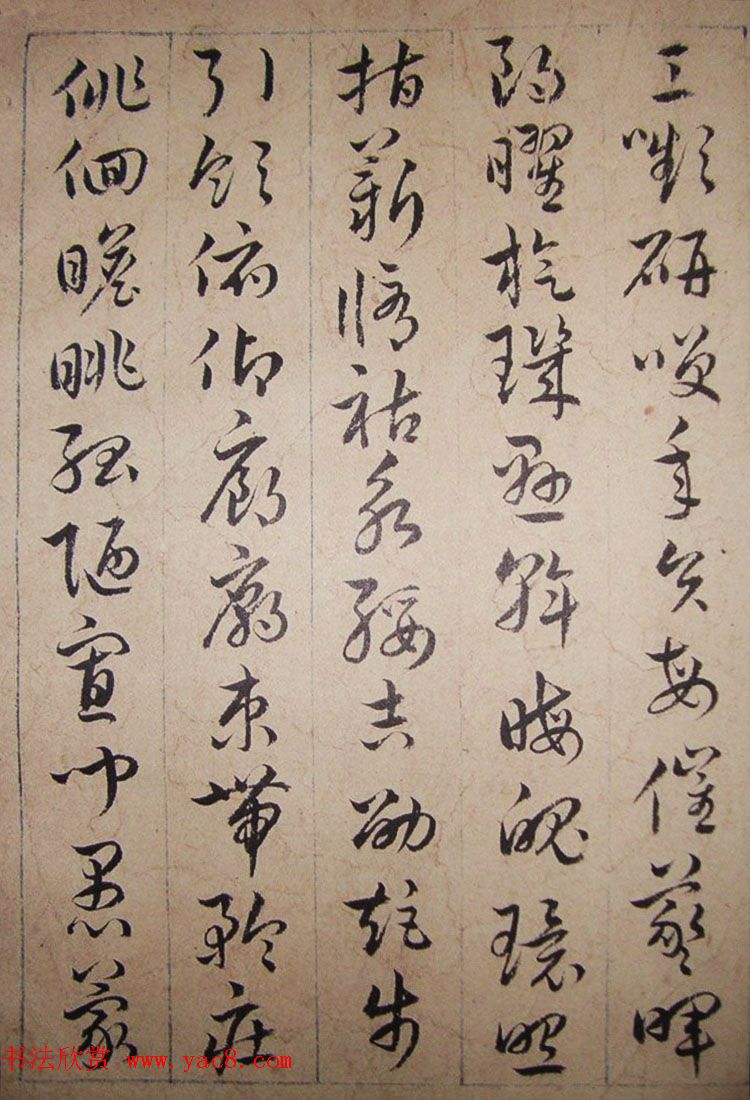 工嚬研咲年矢每催羲暉
朗曜旋璣懸斡晦魄環照
指薪脩祜永綏吉劭矩步
引領俯仰廊廟束帶矜庄
俳佪瞻眺孤陋寡聞愚蒙
书法欣赏 www.yac8.com